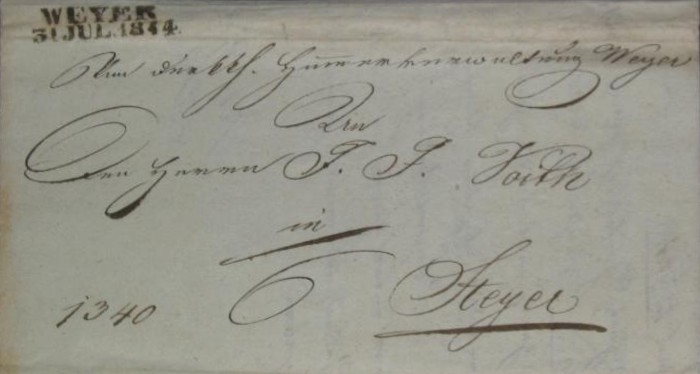 WEYER
31 JUL. 1844.
Von der kk. Hammerverwaltung Weyer
An
Den Herrn J. J. Voith
in
6 Steyer
1340